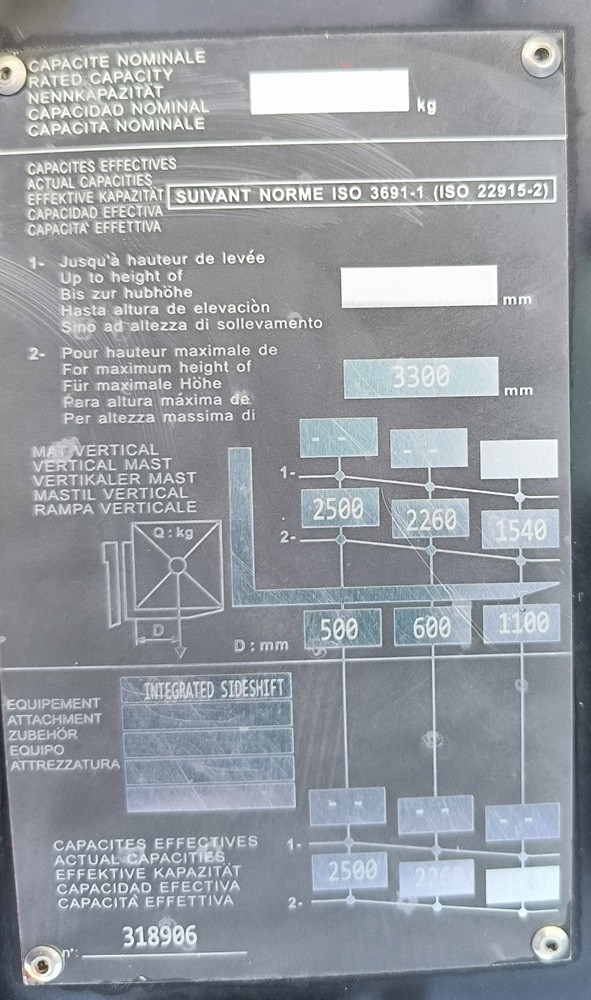 CAPACITE NOMINALE
RATED CAPACITY
NENNKAPAZITÄT
CAPACIDAD NOMINAL
CAPACITA NOMINALE
kg
CAPACITES EFFECTIVES
ACTUAL CAPACITIES
EFFEKTIVE KAPAZITÄT
CAPACIDAD EFECTIVA
CAPACITA' EFFETTIVA
SUIVANT NORME ISO 3691-1 (ISO 22915-2)
1- Jusqu'à hauteur de levée
Up to height of
Bis zur hubhöhe
Hasta altura de elevaciòn
Sino ad altezza di sollevamento
mm
2- Pour hauteur maximale de
For maximum height of
Für maximale Höhe
Para altura máxima de
Per altezza massima di
3300 mm
MAT VERTICAL
VERTICAL MAST
VERTIKALER MAST
MASTIL VERTICAL
RAMPA VERTICALE
- - - -
1-
2500 2260 1540
2-
Q:kg
D
D:mm 500 600 1100
EQUIPEMENT
ATTACHMENT
ZUBEHÖR
EQUIPO
ATTREZZATURA
INTEGRATED SIDESHIFT
- - - - - -
CAPACITES EFFECTIVES
ACTUAL CAPACITIES
EFFEKTIVE KAPAZITÄT
CAPACIDAD EFECTIVA
CAPACITA' EFFETTIVA
1-
2500
2-
n°: 318906